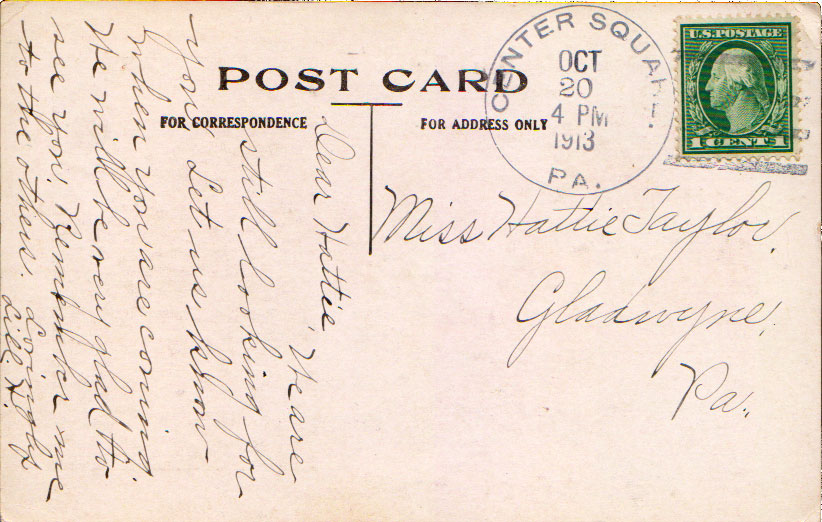 POST CARD
FOR CORRESPONDENCE
FOR ADDRESS ONLY
CENTER SQUARE.
OCT
20
4 PM
1913
PA.
U.S. POSTAGE
1 CENTS 1
Miss Hattie Taylor,
Gladwyne,
Pa.
Dear Hattie, We are
still looking for
you. Let us know
when you are coming.
We will be very glad to
see you. Remember me
to the others. Lovingly
Lill.